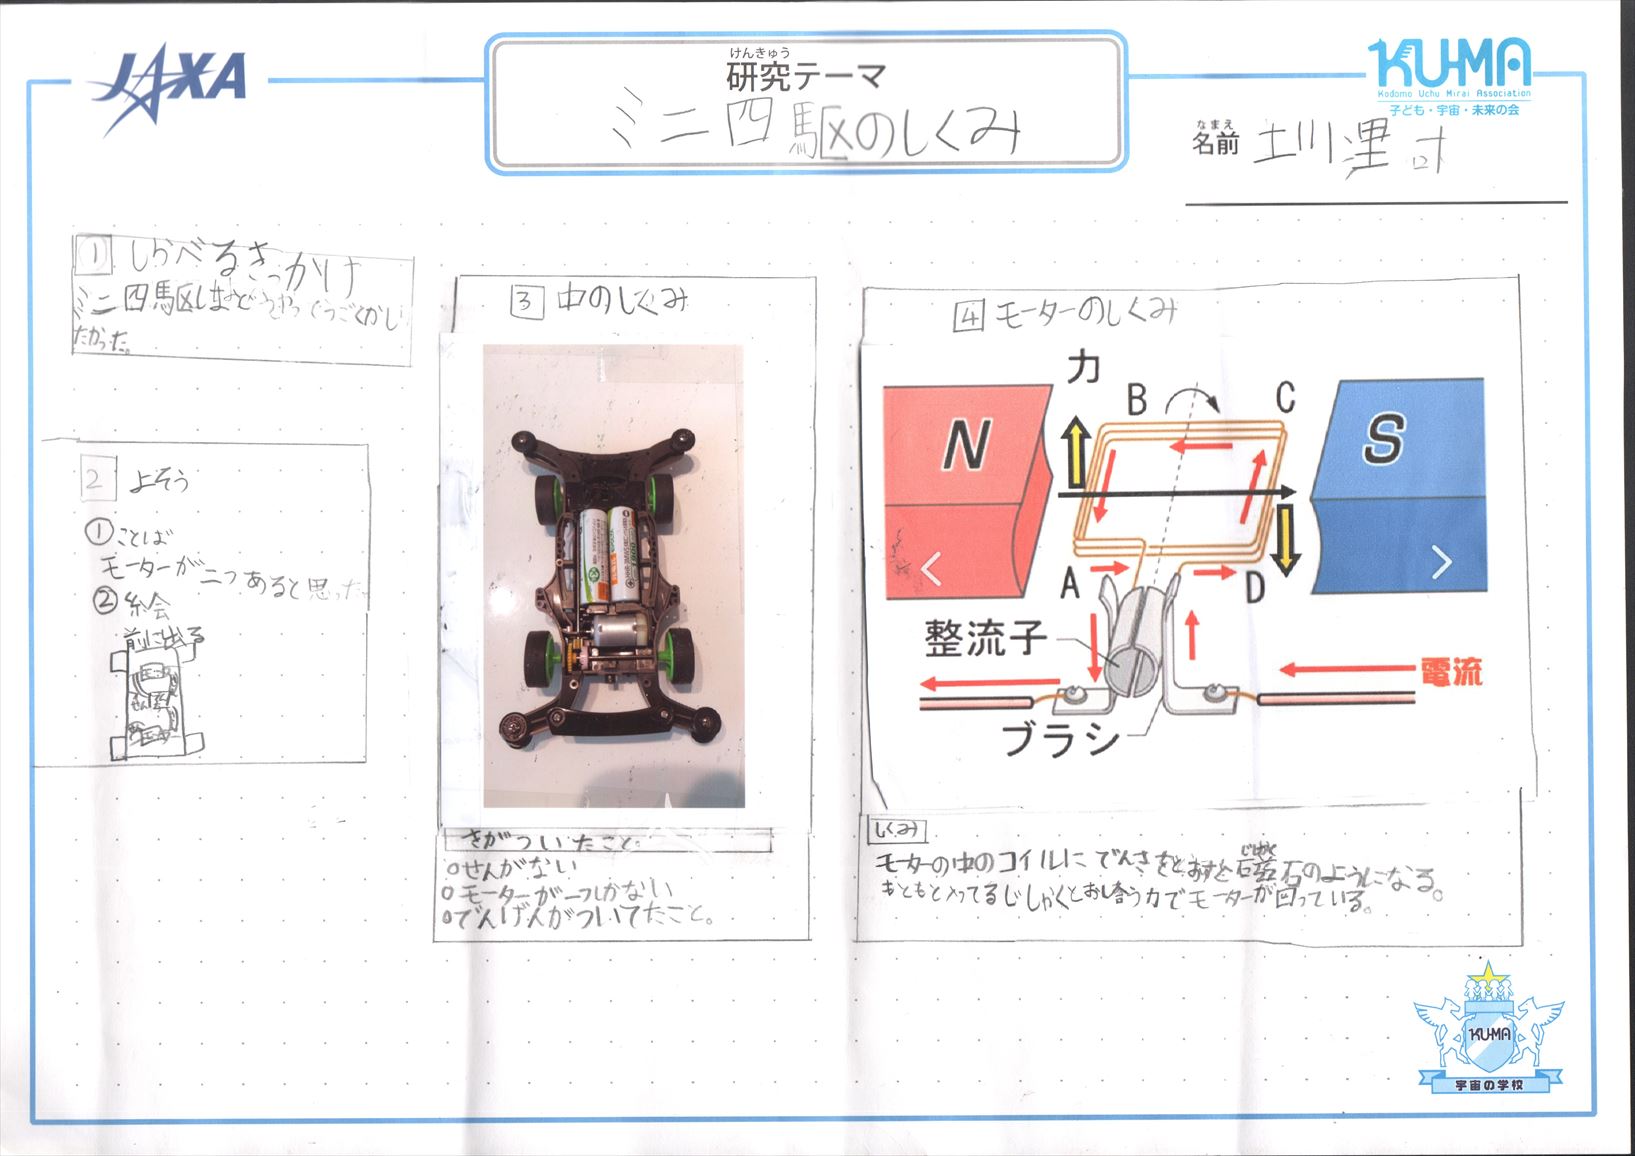 JAXA
けんきゅう
研究テーマ
ミニ四駆のしくみ
KU-MA
Kodomo Uchu Mirai Association
子ども・宇宙・未来の会
なまえ
名前 土川理
1 しらべるきっかけ
ミニ四駆はどうやってうごくかし
たかった。
2 よそう
①ことば
モーターが二つあると思った
②絵
前に出る
せん
3 中のしくみ
きがついたこと。
○せんがない
○モーターが一つしかない
○でんげんがついてたこと。
4 モーターのしくみ
力
B
C
N
S
A
D
整流子
電流
ブラシ
しくみ
モーターの中のコイルにでんきをとおすと磁石のようになる。
じしゃく
もともと入ってるじしゃくとおし合う力でモーターが回っている。
KU-MA
宇宙の学校